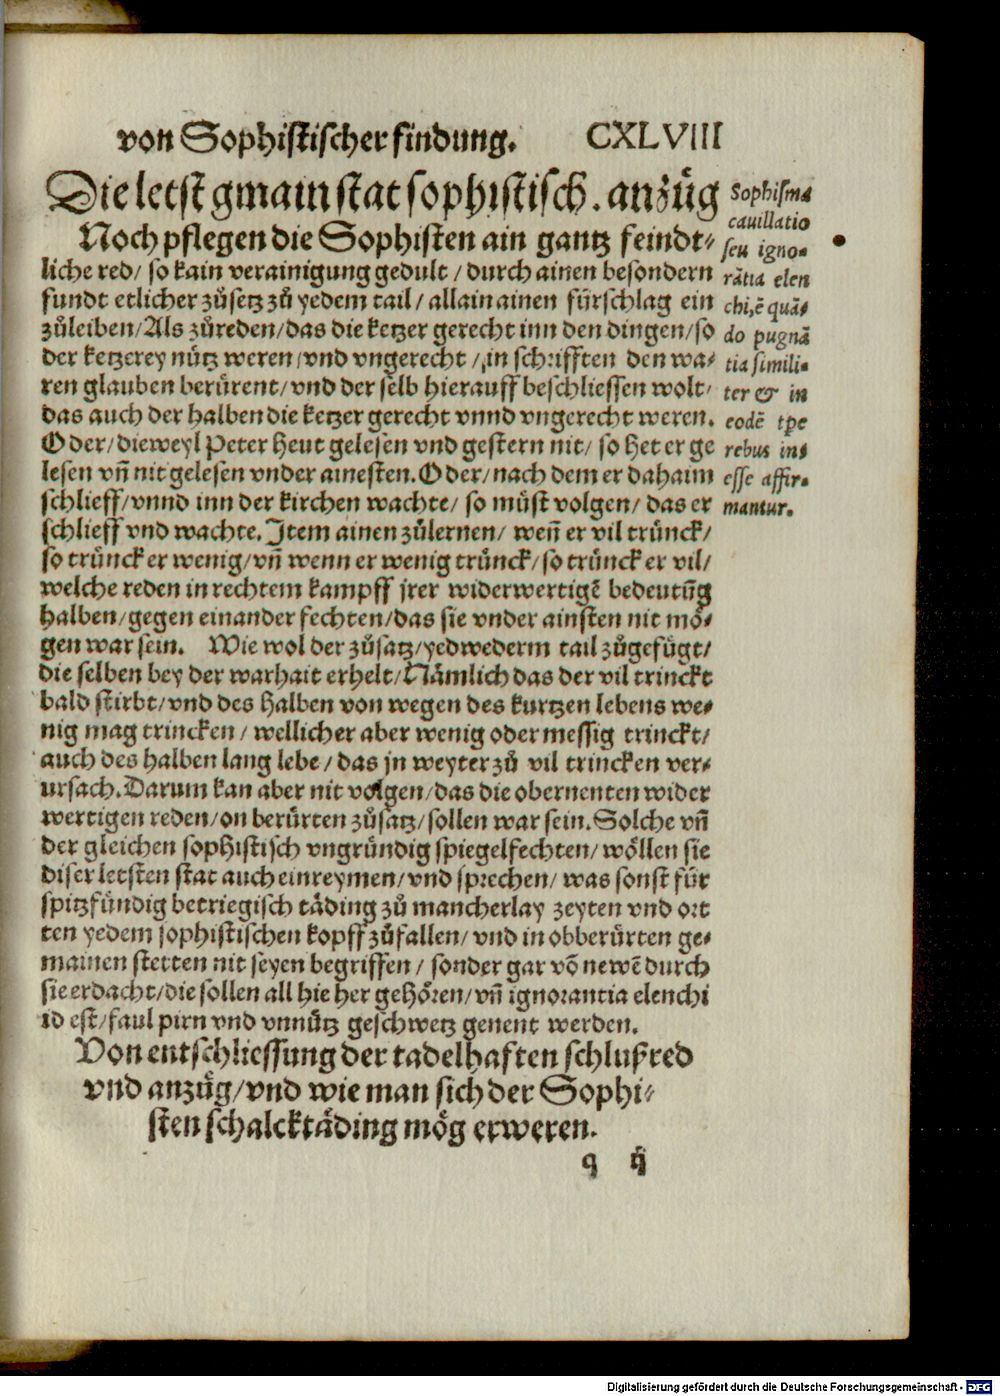 von Sophistischer findung. CXLVIII
Die letst gmain stat sophistisch. anzůg
Noch pflegen die Sophisten ain gantz feindt⸗
liche red/ so kain verainigung gedult / durch ainen besondern
fundt etlicher zůsetz zů yedem tail / allain ainen fürschlag ein
zůleiben/ Als zůreden/ das die ketzer gerecht inn den dingen/ so
der ketzerey nütz weren/ vnd vngerecht / in schrifften den wa⸗
ren glauben berürent/ vnd der selb hierauff beschliessen wolt/
das auch der halben die ketzer gerecht vnnd vngerecht weren.
Oder/ dieweyl Peter heut gelesen vnd gestern nit/ so het er ge
lesen vñ nit gelesen vnder ainesten. Oder/ nach dem er dahaim
schlieff/ vnnd inn der kirchen wachte/ so müst volgen/ das er
schlieff vnd wachte. Item ainen zůlernen/ weñ er vil trünck/
so trünck er wenig/ vñ wenn er wenig trünck/ so trünck er vil/
welche reden in rechtem kampff jrer widerwertigẽ bedeutũg
halben/ gegen einander fechten/ das sie vnder ainsten nit mö⸗
gen war sein. Wie wol der zůsatz/ yedwederm tail zůgefügt/
die selben bey der warhait erhelt/ Nämlich das der vil trinckt
bald stirbt/ vnd des halben von wegen des kurtzen lebens we⸗
nig mag trincken / wellicher aber wenig oder messig trinckt/
auch des halben lang lebe / das jn weyter zů vil trincken ver⸗
ursach. Darum kan aber nit volgen/ das die obernenten wider
wertigen reden/ on berürten zůsatz/ sollen war sein. Solche vñ
der gleichen sophistisch vngründig spiegelfechten/ wöllen sie
diser letsten stat auch einreymen/ vnd sprechen/ was sonst für
spitzfündig betriegisch täding zů mancherlay zeyten vnd ort
ten yedem sophistischen kopff zůfallen/ vnd in obberürten ge⸗
mainen stetten nit seyen begriffen / sonder gar võ newẽ durch
sie erdacht/ die sollen all hie her gehören/ vñ ignorantia elenchi
id est/ faul pirn vnd vnnütz geschwetz genent werden.
Von entschliessung der tadelhaften schlußred
vnd anzüg/ vnd wie man sich der Sophi⸗
sten schalcktäding mög erweren.
q ij
Sophisma
cauillatio
seu igno⸗
rãtia elen
chi, ẽ quã⸗
do pugnã
tia simili⸗
ter & in
eodẽ tpe
rebus in⸗
esse affir⸗
mantur.
Digitalisierung gefördert durch die Deutsche Forschungsgemeinschaft - DFG